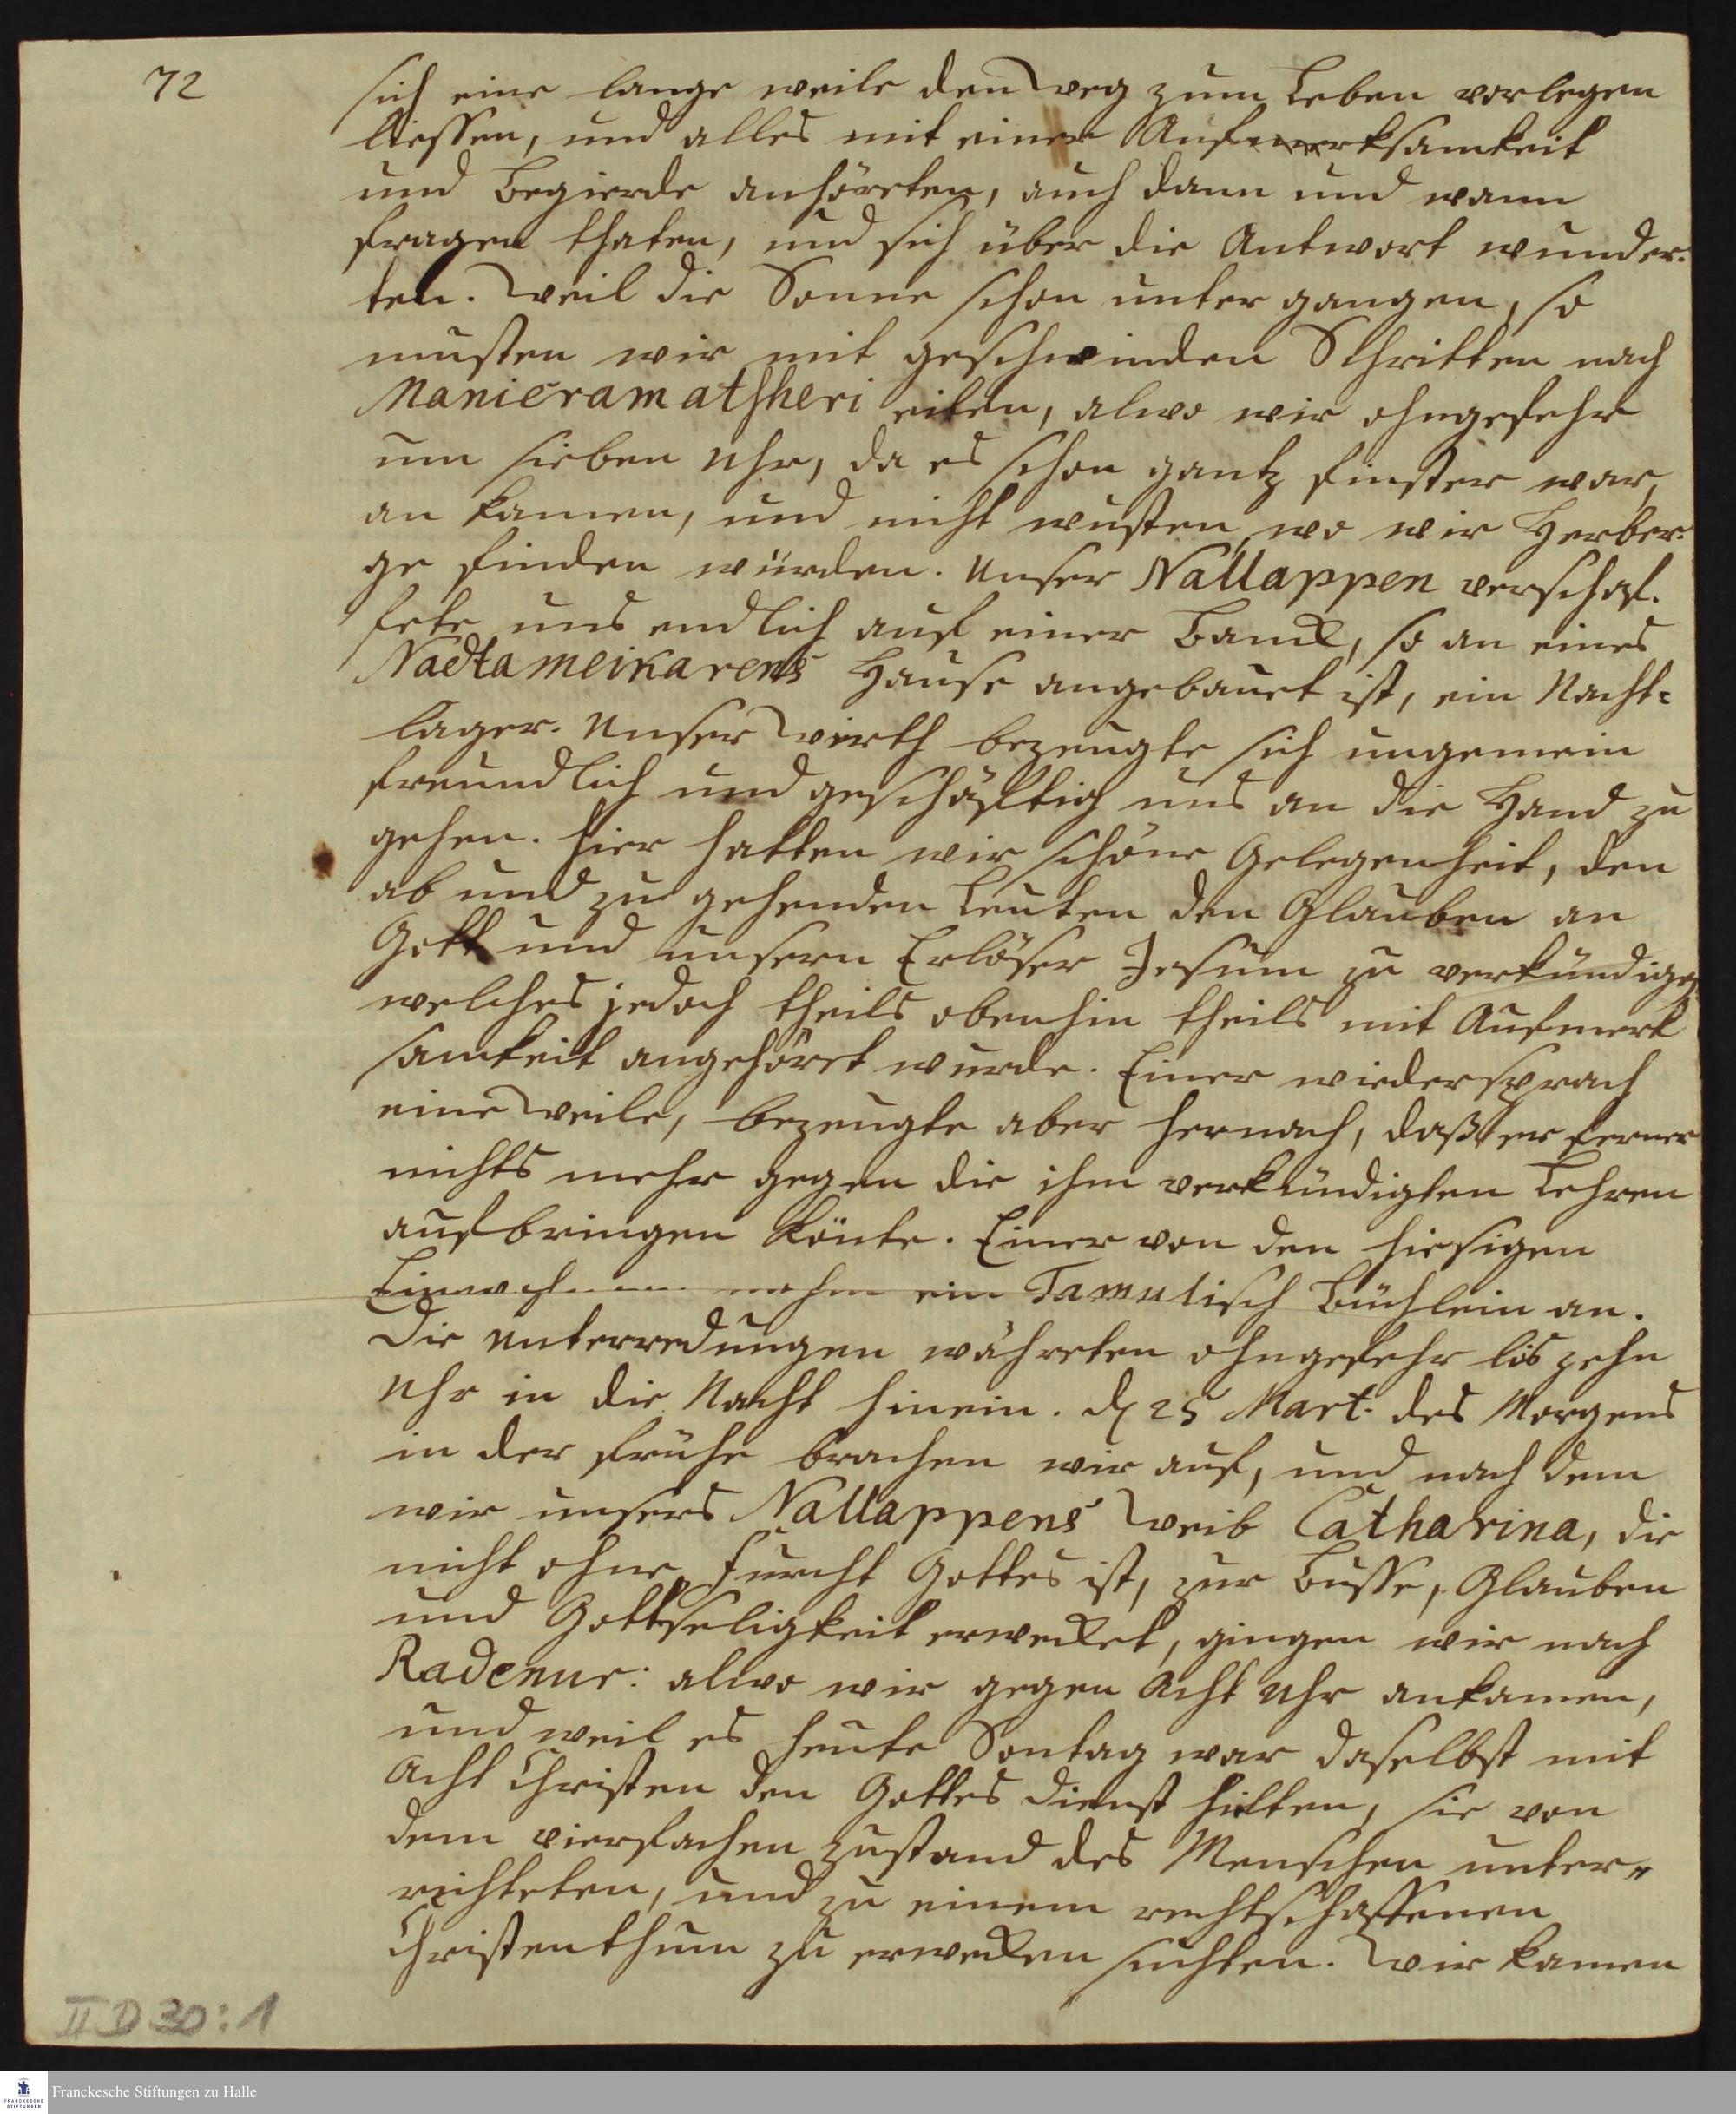 72
sich eine lange weile den weg zum Leben vorlegen
liessen, und alles mit einer Aufmerksamkeit
und Begierde anhöreten, auch dann und wann
fragen thaten, und sich über die Antwort wunder-
ten. Weil die Sonne schon unter gangen, so
musten wir mit geschwinden Schritten nach
Manieramatsheri eilen, alwo wir ohngefehr
um sieben Uhr, da es schon gantz finster war,
an kamen, und nicht wusten wo wir Herber-
ge finden würden. Unser Nallappen verschaf-
fete uns endlich auf einer Banck, so an eines
Nadtameikarens Hause angebauet ist, ein Nacht-
lager. Unser Wirth bezeugte sich ungemein
freundlich und geschäfftig uns an die Hand zu
gehen. Hier hatten wir schöne Gelegenheit, den
ab und zu gehenden Leuten den Glauben an
Gott und unsern Erlöser Jesum zu verkündigen
welches jedoch theils obenhin theils mit Aufmerk
samkeit angehöret wurde. Einer wiedersprach
eine Weile, bezeugte aber hernach, daß er ferner
nichts mehr gegen die ihm verkündigten Lehren
aufbringen könte. Einer von den hiesigen
Einwohnern nahm ein Tamulisch Büchlein an.
Die Unterredungen währeten ohngefehr bis zehn
Uhr in die Nacht hinein. d. 25 Mart. des Morgens
in der frühe brachen wir auf, und nach dem
wir unsers Nallappens Weib Catharina, die
nicht ohne Furcht Gottes ist, zur Busse, Glauben
und Gottseligkeit erwecket, gingen wir nach
Radenur: alwo wir gegen Acht Uhr ankamen,
und weil es heute Sontag war daselbst mit
Acht Christen den Gottes dienst hielten, sie von
dem vierfachen Zustand des Menschen unter-
richteten, und zu einem rechtschaffenen
Christenthum zu erwecken suchten. Wir kamen
II D 30:1
Franckesche Stiftungen zu Halle
FRANCKESCHE
STIFTUNGEN